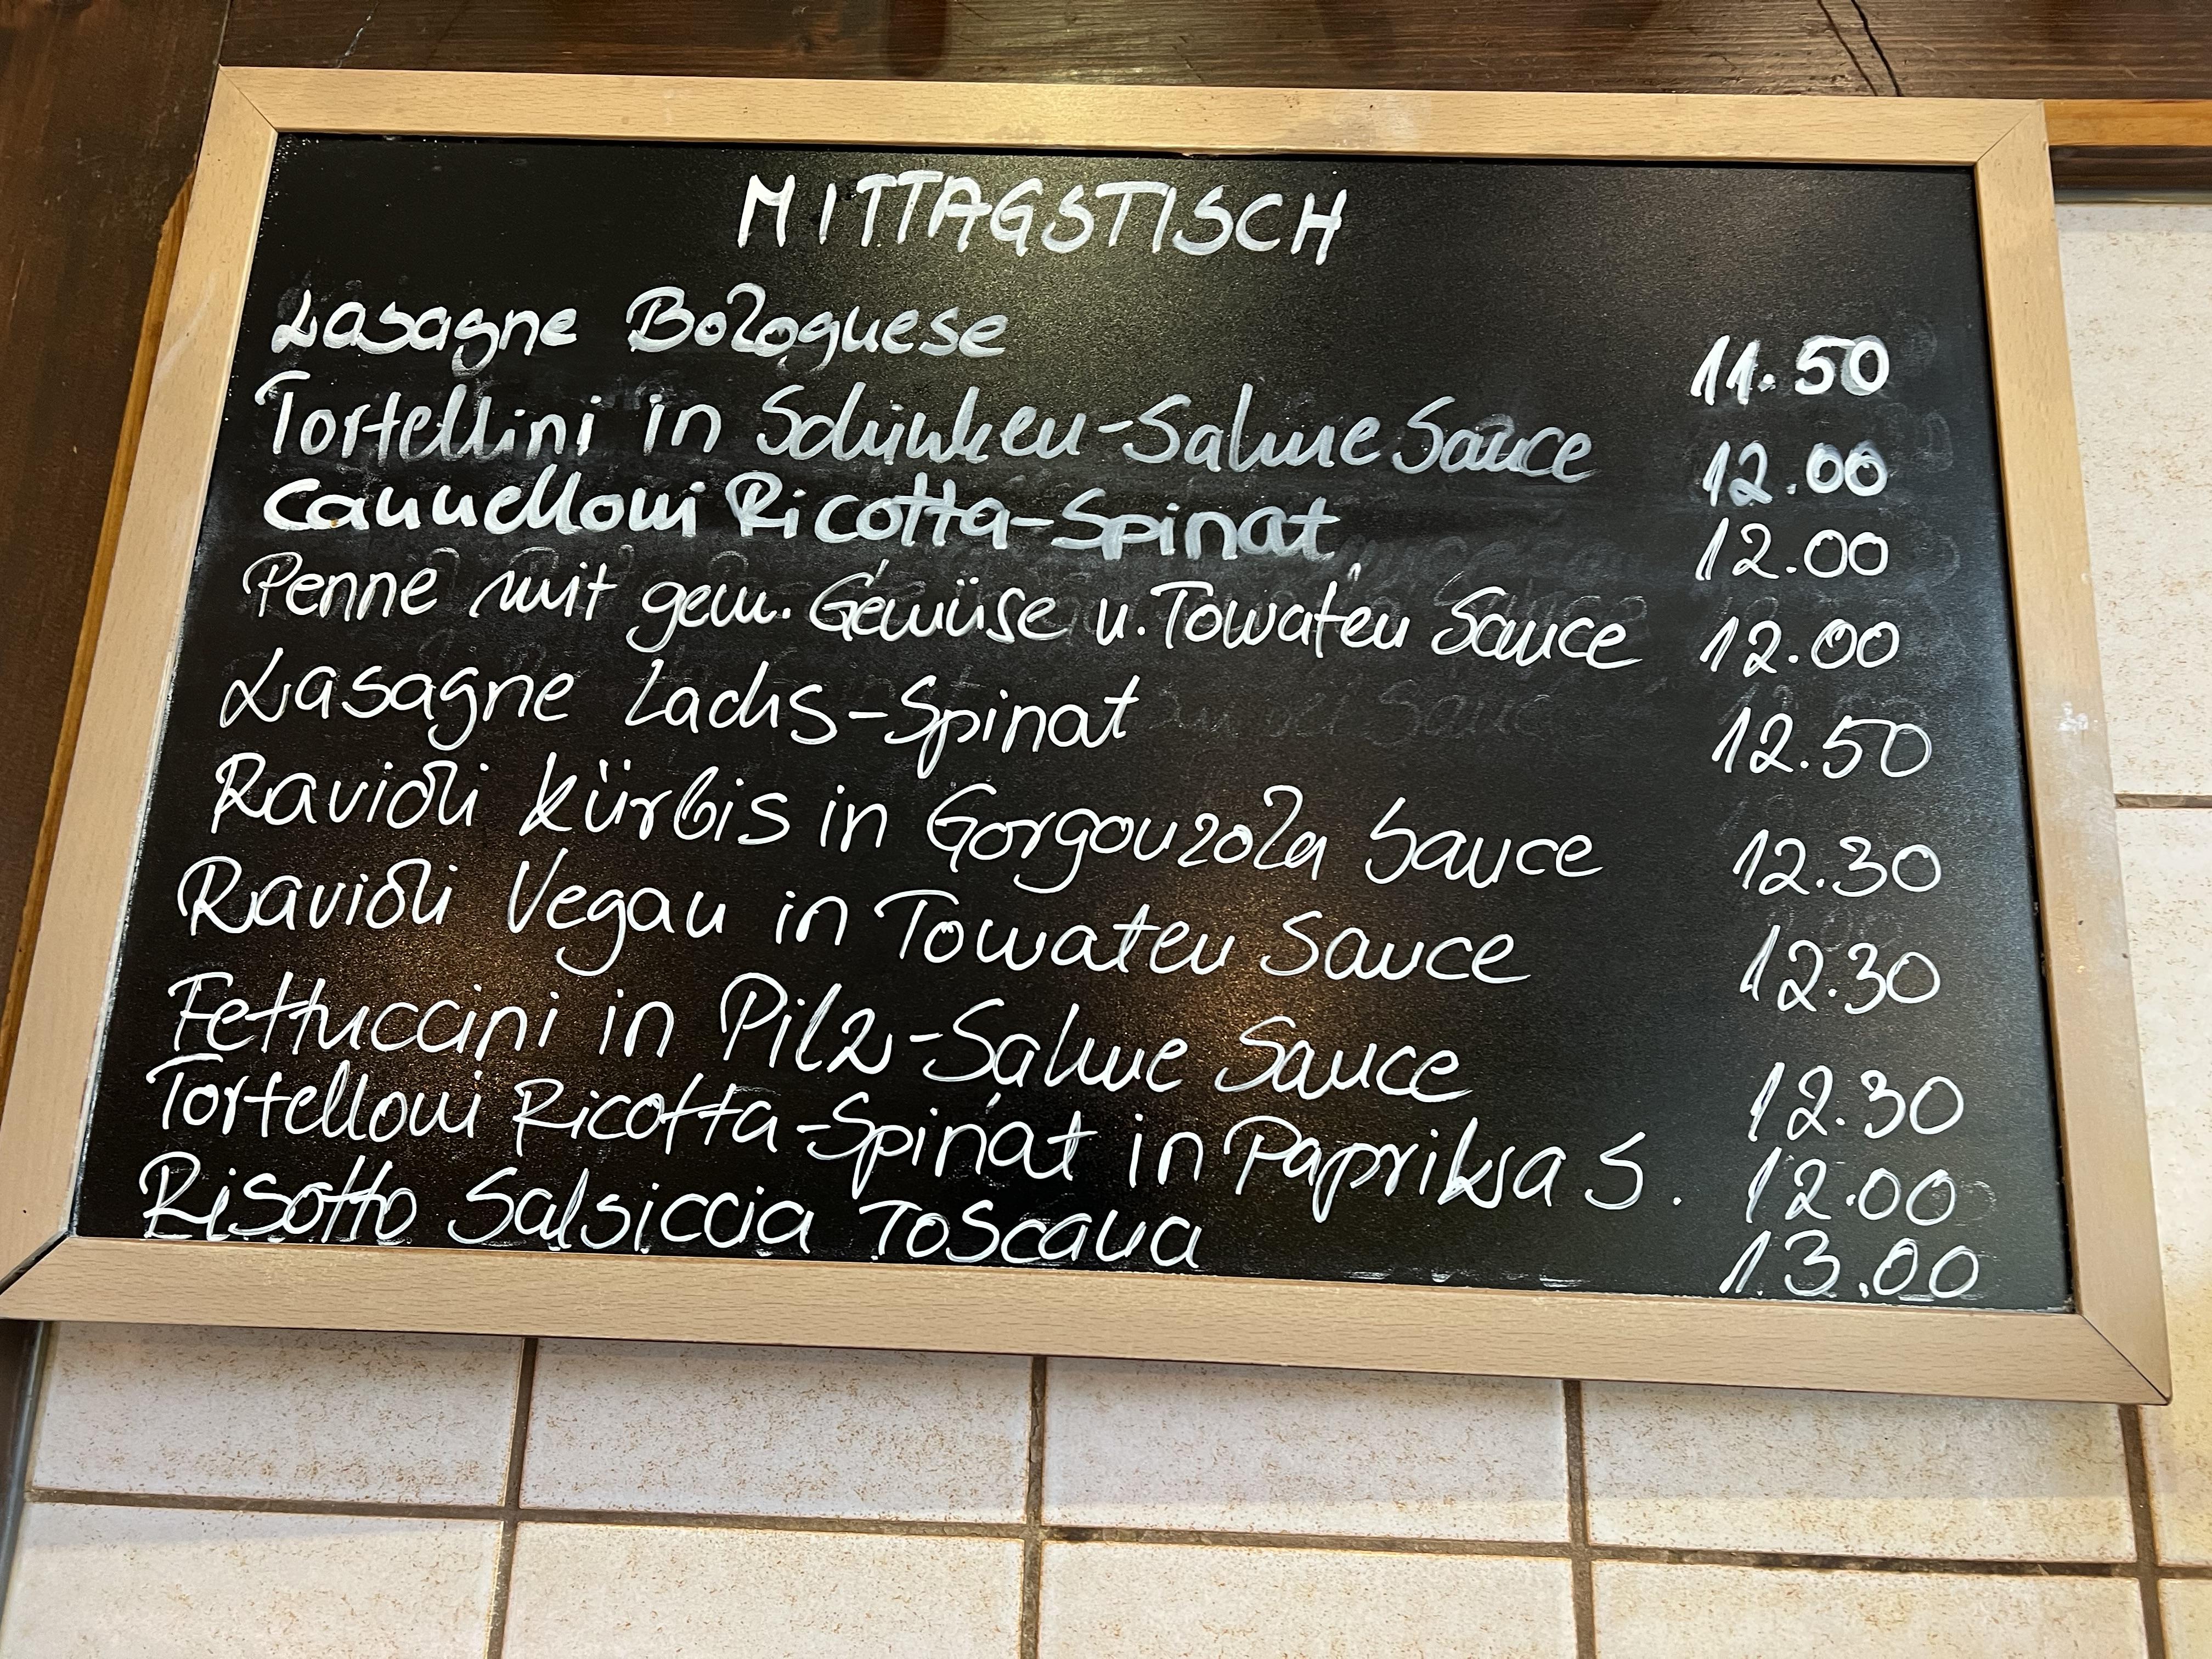 MITTAGSTISCH
Lasagne Bolognese 11.50
Tortellini in Schinken-Sahne Sauce 12.00
Cannelloni Ricotta-Spinat 12.00
Penne mit gem. Gemüse u. Tomaten Sauce 12.00
Lasagne Lachs-Spinat 12.50
Ravioli Kürbis in Gorgonzola Sauce 12.30
Ravioli Vegan in Tomaten Sauce 12.30
Fettuccini in Pilz-Sahne Sauce 12.30
Tortelloni Ricotta-Spinat in Paprika S. 12.00
Risotto Salsiccia Toscana 13.00